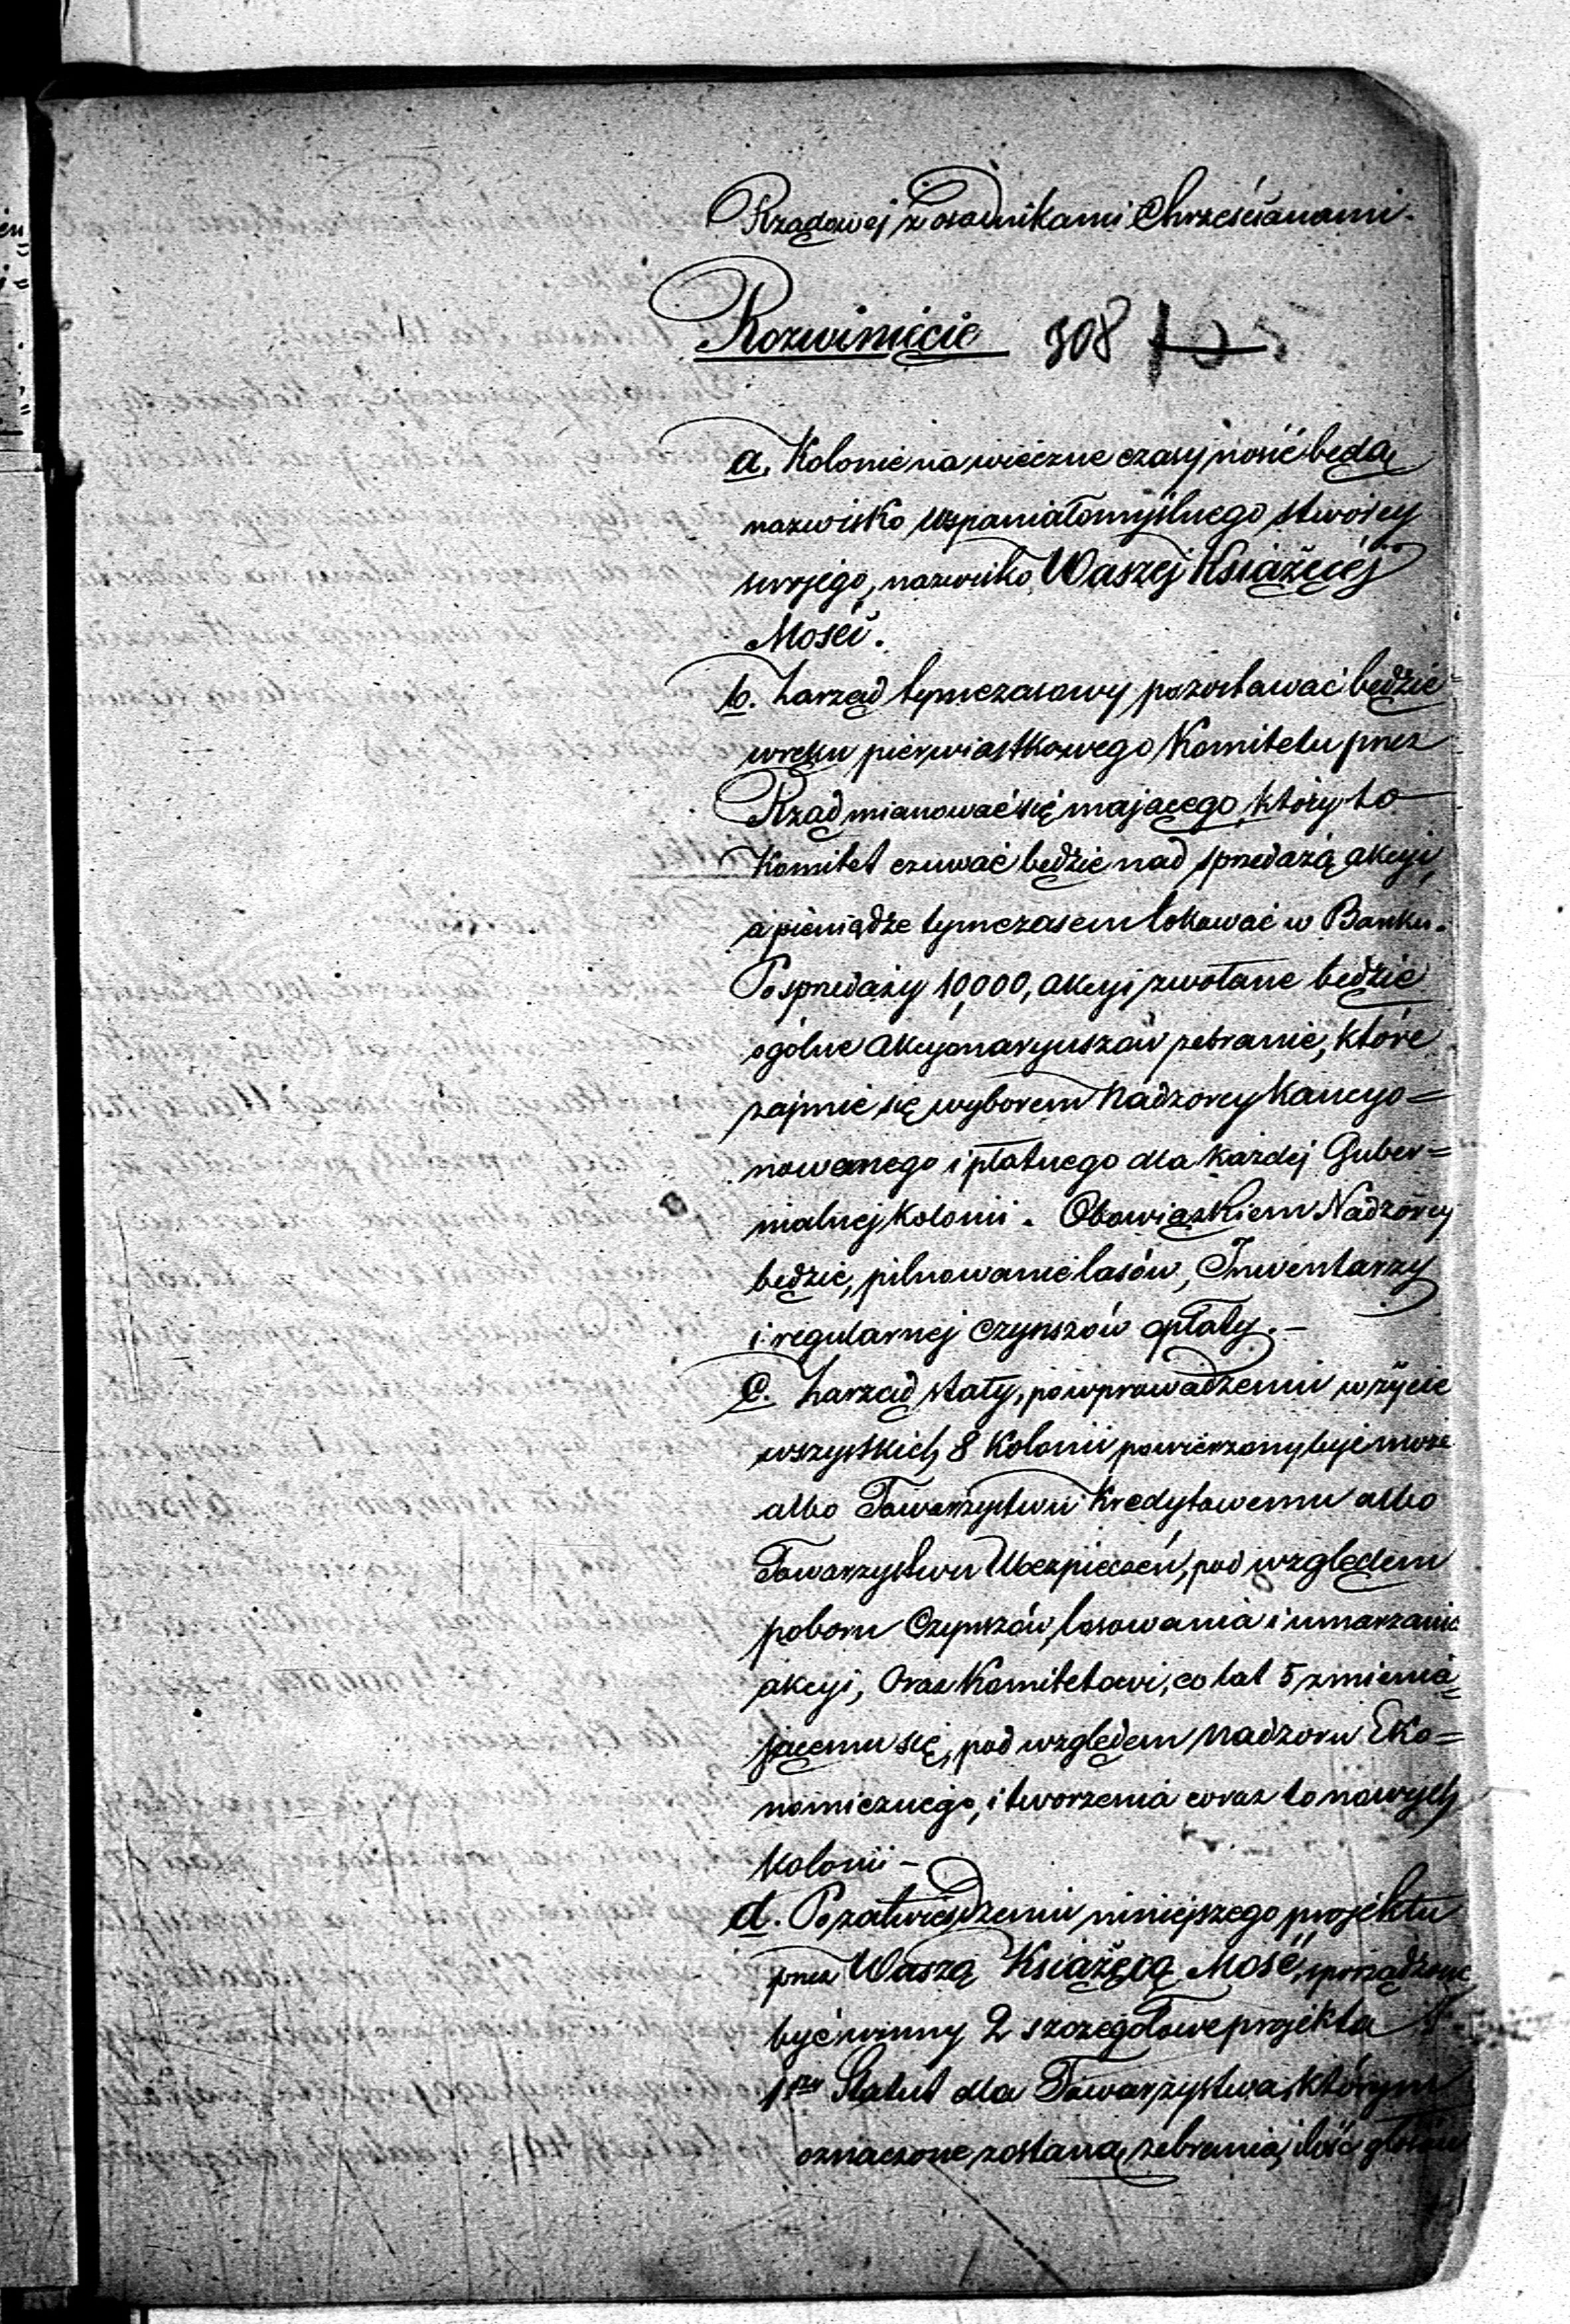 Rządowej z osadnikami Chrześcianami.
Rozwinięcie 308
a. Kolonie na wieczne czasy nosić będą
nazwisko wspaniałomyślnego stwórcy
swojego, nazwisko Waszej Książęcéj
Mości.
b. Zarząd tymczasowy pozostawać będzie
w ręku pierwiastkowego Komitetu przez
Rząd mianować się mającego, który to
Komitet czuwać będzie nad sprzedażą akcyi,
a pieniądze tymczasem lokować w Banku.
Po sprzedaży 10,000, akcyi zwołane będzie
ogólne akcyonaryuszów zebranie, które
zajmie się wyborem Nadzorcy Kaucyo=
nowanego i płatnego dla każdej Guber=
nialnej Kolonii. Obowiązkiem Nadzorcy
będzie, pilnowanie lasów, Inwentarzy
i regularnej czynszów opłaty.-
c. Zarząd stały, po wprowadzeniu w życie
wszystkich 8 Kolonii powierzony być może
albo Towarzystwu Kredytowemu albo
Towarzystwu Ubezpieczeń, pod względem
poboru Czynszów, losowania i umarzania
akcyi, oraz Komitetowi, co lat 5 zmienia=
jącemu się, pod względem nadzoru Eko=
nomicznego, i tworzenia coraz to nowych
Kolonii -
d. Po zatwierdzeniu niniejszego projektu
przez Waszą Książęcą Mość, sporządzone
być winny 2 szczegółowe projekta
1szy Statut dla Towarzystwa, którym
oznaczone zostaną, zebrania, ilość głosów